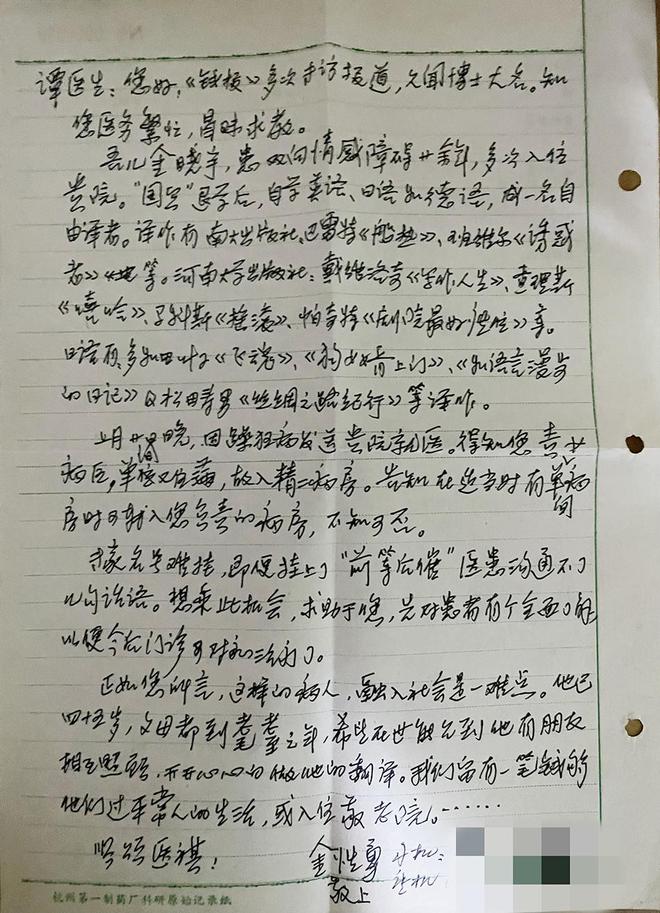 谭医生：您好，《钱报》多次专访报道，久闻博士大名。知
您医务繁忙，冒昧求教。
吾儿金晓宇，患双向情感障碍廿余年，多次入住
贵院。“国中”退学后，自学英语、日语和德语，成一名自
由译者。译作有南大出版社：巴雷特《船热》、班维尔《诱惑
者》等。河南大学出版社：戴维洛奇《写作人生》、查理斯
《嘻哈》、
日语有：多和田叶子《飞魂》、《狗女婿上门》、《和语言漫步
的日记》及松田寿男《丝绸之路纪行》等译作。
上月廿晚，因躁狂病发送贵院就医。得知您责
病区，单间又住满，故入精二病房。告知在适当时有单间病
房时可转入您负责的病房，不知可否。
专家名号难挂，即便挂上了“前等后催”医患沟通不了
几句话语。想乘此机会，求助于您，先对患者有个全面了解
以便今后门诊可对和治病了。
正如您所言，这样的病人，融入社会是一难点。他已
四十五岁，父母都到耄耋之年，希望在世能见到他有朋友
相互照顾，开开心心的做他的翻译。我们留有一笔钱够
他们过平常人的生活，或入住敬老院。……
顺颂医祺！ 金性勇 手机：
敬上 住机
杭州第一制药厂科研原始记录纸